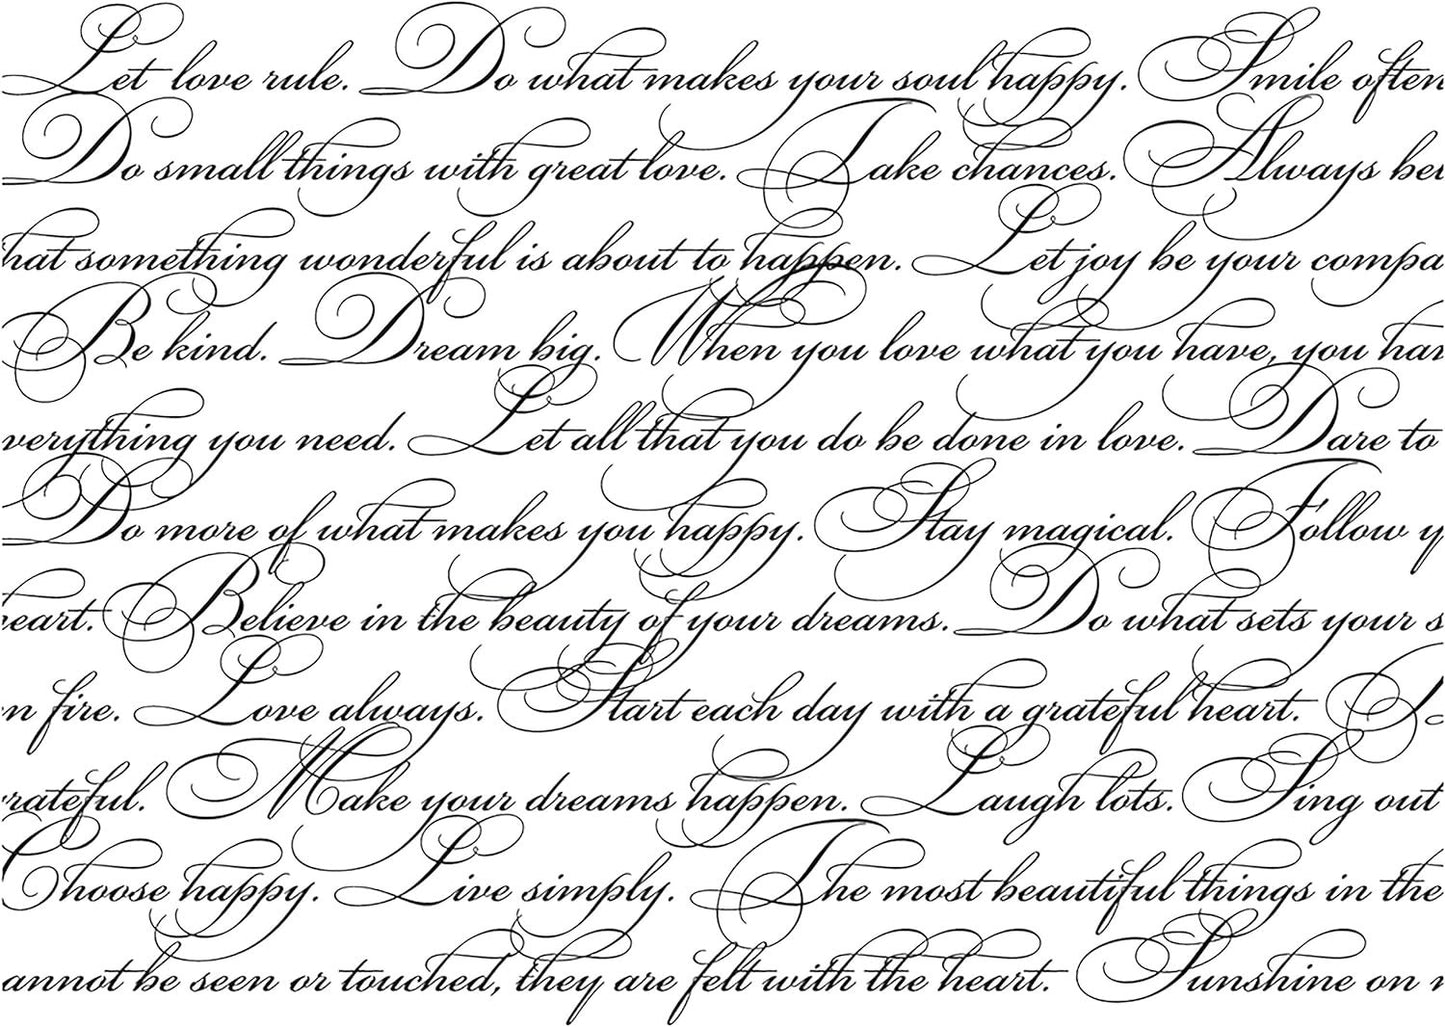 Let love rule. Do what makes your soul happy. Smile often
Do small things with great love. Take chances. Always
something wonderful is about to happen. Let joy be your
Be kind. Dream big. When you love what you have, you
you need. Let all that you do be done in love. Dare to
Do more of what makes you happy. Stay magical. Follow
Believe in the beauty of your dreams. Do what sets your
fire. Love always. Start each day with a grateful heart.
Make your dreams happen. Laugh lots. Sing out
Choose happy. Live simply. The most beautiful things in the
be seen or touched, they are felt with the heart. Sunshine on